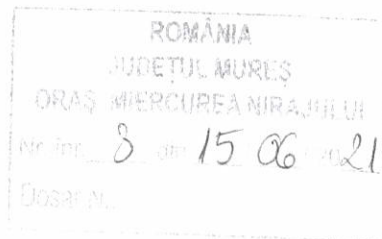 ROMÂNIA
JUDEȚUL MUREȘ
ORAȘ MIERCUREA NIRAJULUI
Nr. înr. 8 din 15 06 2021
Dosar Nr.